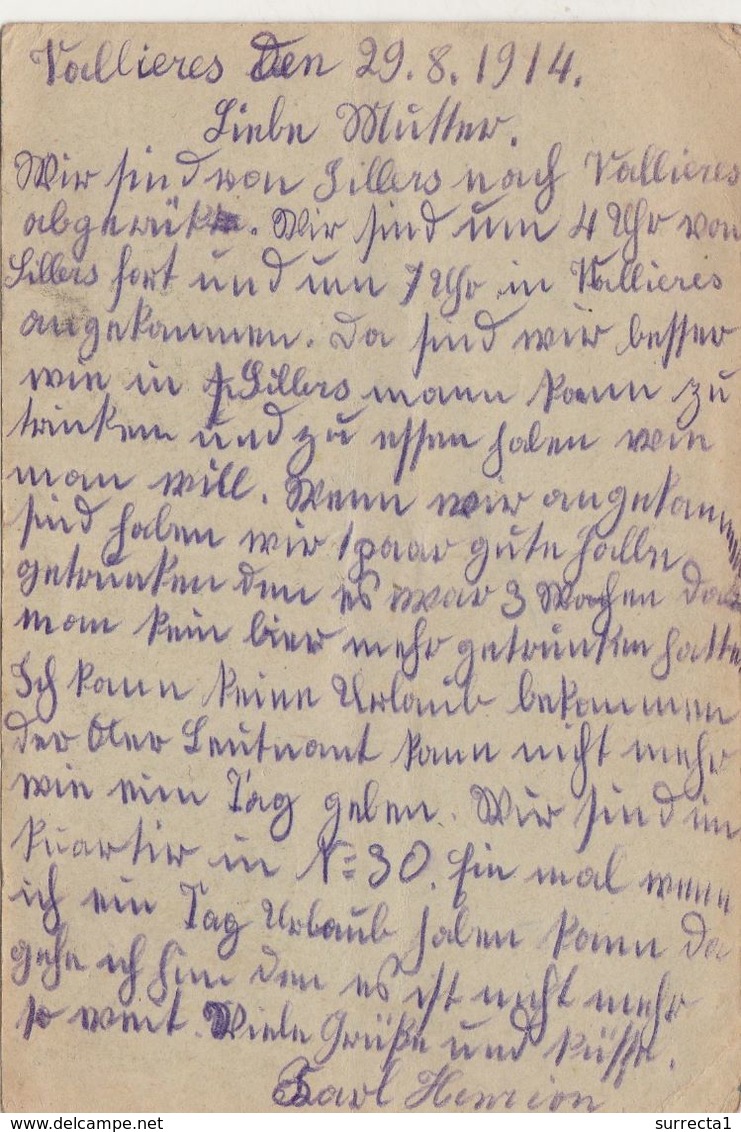 Vallieres den 29.8.1914.
Liebe Mutter.
Wir sind von Sillers nach Vallieres
abgerükt. Wir sind um 4 Uhr von
Sillers fort und um 7 Uhr in Vallieres
angekammen. Da sind wir besser
wie in Sillers mann kann zu
trinken und zu essen haben wie
man will. Wenn wir angekam
sind haben wir 1 paar gute halbe
getrunken den es war 3 Wochen das
man kein bier mehr getrunken hatte.
Ich kann keine Urlaub bekammen
der Ober Leutnant kann nicht mehr
wie ein Tag geben. Wir sind im
Kuartir in N= 30. Ein mal wenn
ich ein Tag Urlaub haben kann da
gehe ich hin den es ist nicht mehr
so weit. Viele Grüße und küsse.
Karl Henrion
surrecta1